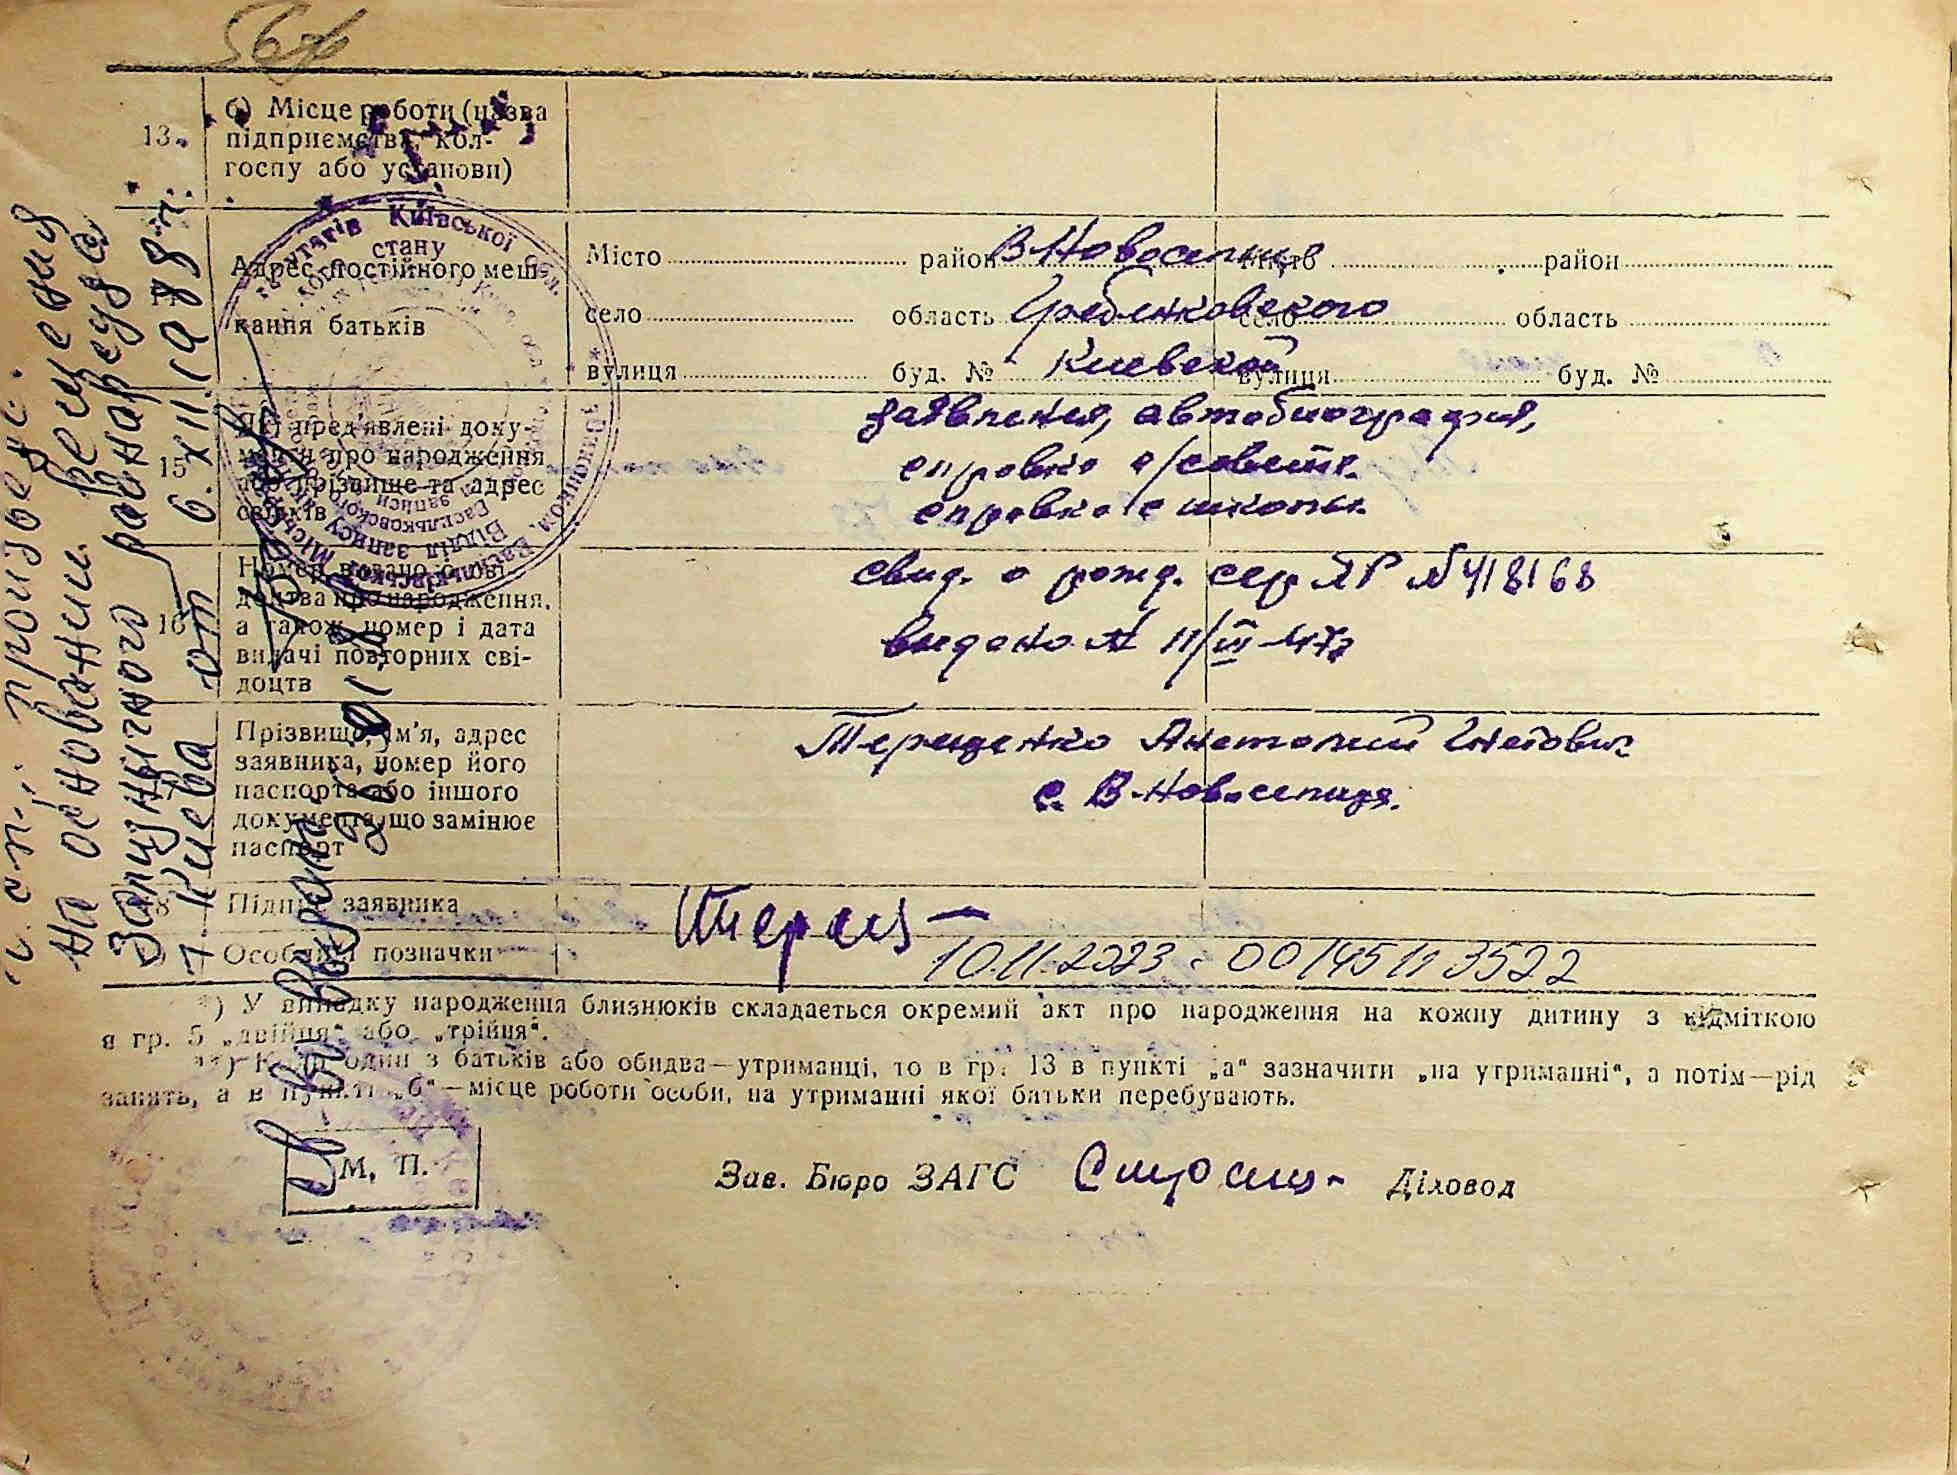 13.
б) Місце роботи (назва
підприємства, кол-
госпу або установи)
Адрес постійного меш-
кання батьків
Місто район В-Новоселица Місто район
село область Гребенковского село область
вулиця буд. № Киевской вулиця буд. №
15
Які пред'явлені доку-
менти про народження
або прізвище та адрес
свідків
заявления, автобиография,
справка с/совета.
справка с школы.
16
Номер видано о свi-
доцтва про народження,
а також номер і дата
видачі повторних сві-
доцтв
свид. о рожд. сер ЯР №418168
видано 11/VI-47г
17
Прізвище, ім'я, адрес
заявника, номер його
паспорта або іншого
документа, що замінює
паспорт
Терещенко Анатолий Гнатович
с. В-Новоселица.
18
Підпис заявника
Терещ-
Особливі позначки
10.11.2023 - 00145113522
*) У випадку народження близнюків складається окремий акт про народження на кожну дитину з відміткою
в гр. 5 „двійня“ або „трійня“.
**) Коли один з батьків або обидва—утриманці, то в гр. 13 в пункті „а“ зазначити „на утриманні“, а потім—рід
занять, а в пункті „б“—місце роботи особи, на утриманні якої батьки перебувають.
М. П.
Зав. Бюро ЗАГС
Діловод
на основании решения
Зализнычного райнарсуда
г. Киева от 6.XII.1978г.